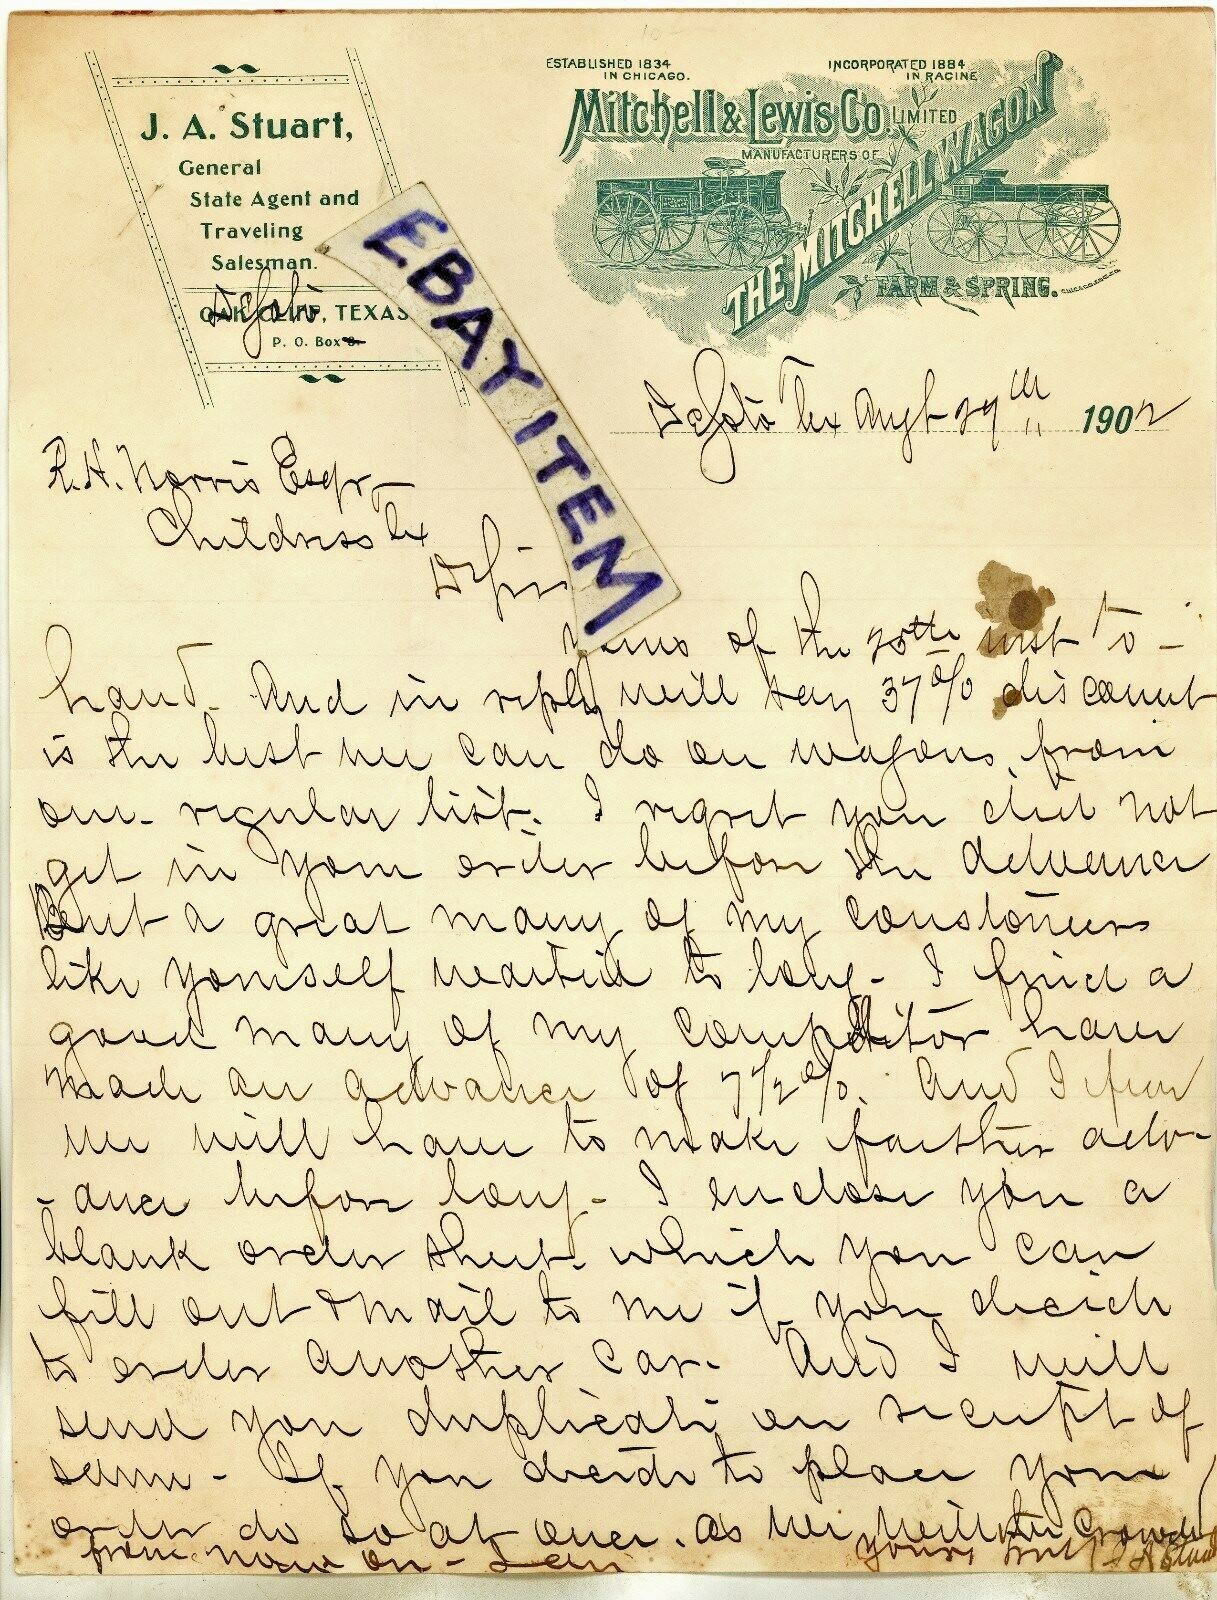 J. A. Stuart,
General
State Agent and
Traveling
Salesman.
OAK CLIFF, TEXAS
DeSoto
P. O. Box 8.
ESTABLISHED 1834
IN CHICAGO.
INCORPORATED 1884
IN RACINE
Mitchell & Lewis Co. LIMITED
MANUFACTURERS OF
THE MITCHELL WAGON
FARM & SPRING.
EBAY ITEM
DeSoto Tex Augt 29th 1902
R. H. Norris Esqr
Childress Tex
D Sir
Yours of the 25th inst to
hand. And in reply will say 37% discount
is the best we can do on wagons from
our regular list. I regret you did not
get in your order before the advance
But a great many of my constomers
like yourself waited to long. I find a
good many of my competitor have
made an advance of 7 1/2 %. And I fear
we will have to make farther adv-
-ance before long. I enclose you a
blank order sheet which you can
fill out & mail to me if you decide
to order another car. And I will
send you duplicate on receipt of
same. If you decide to place your
order do so at once. as we will be crowded
from now on
Yours truly J A Stuart